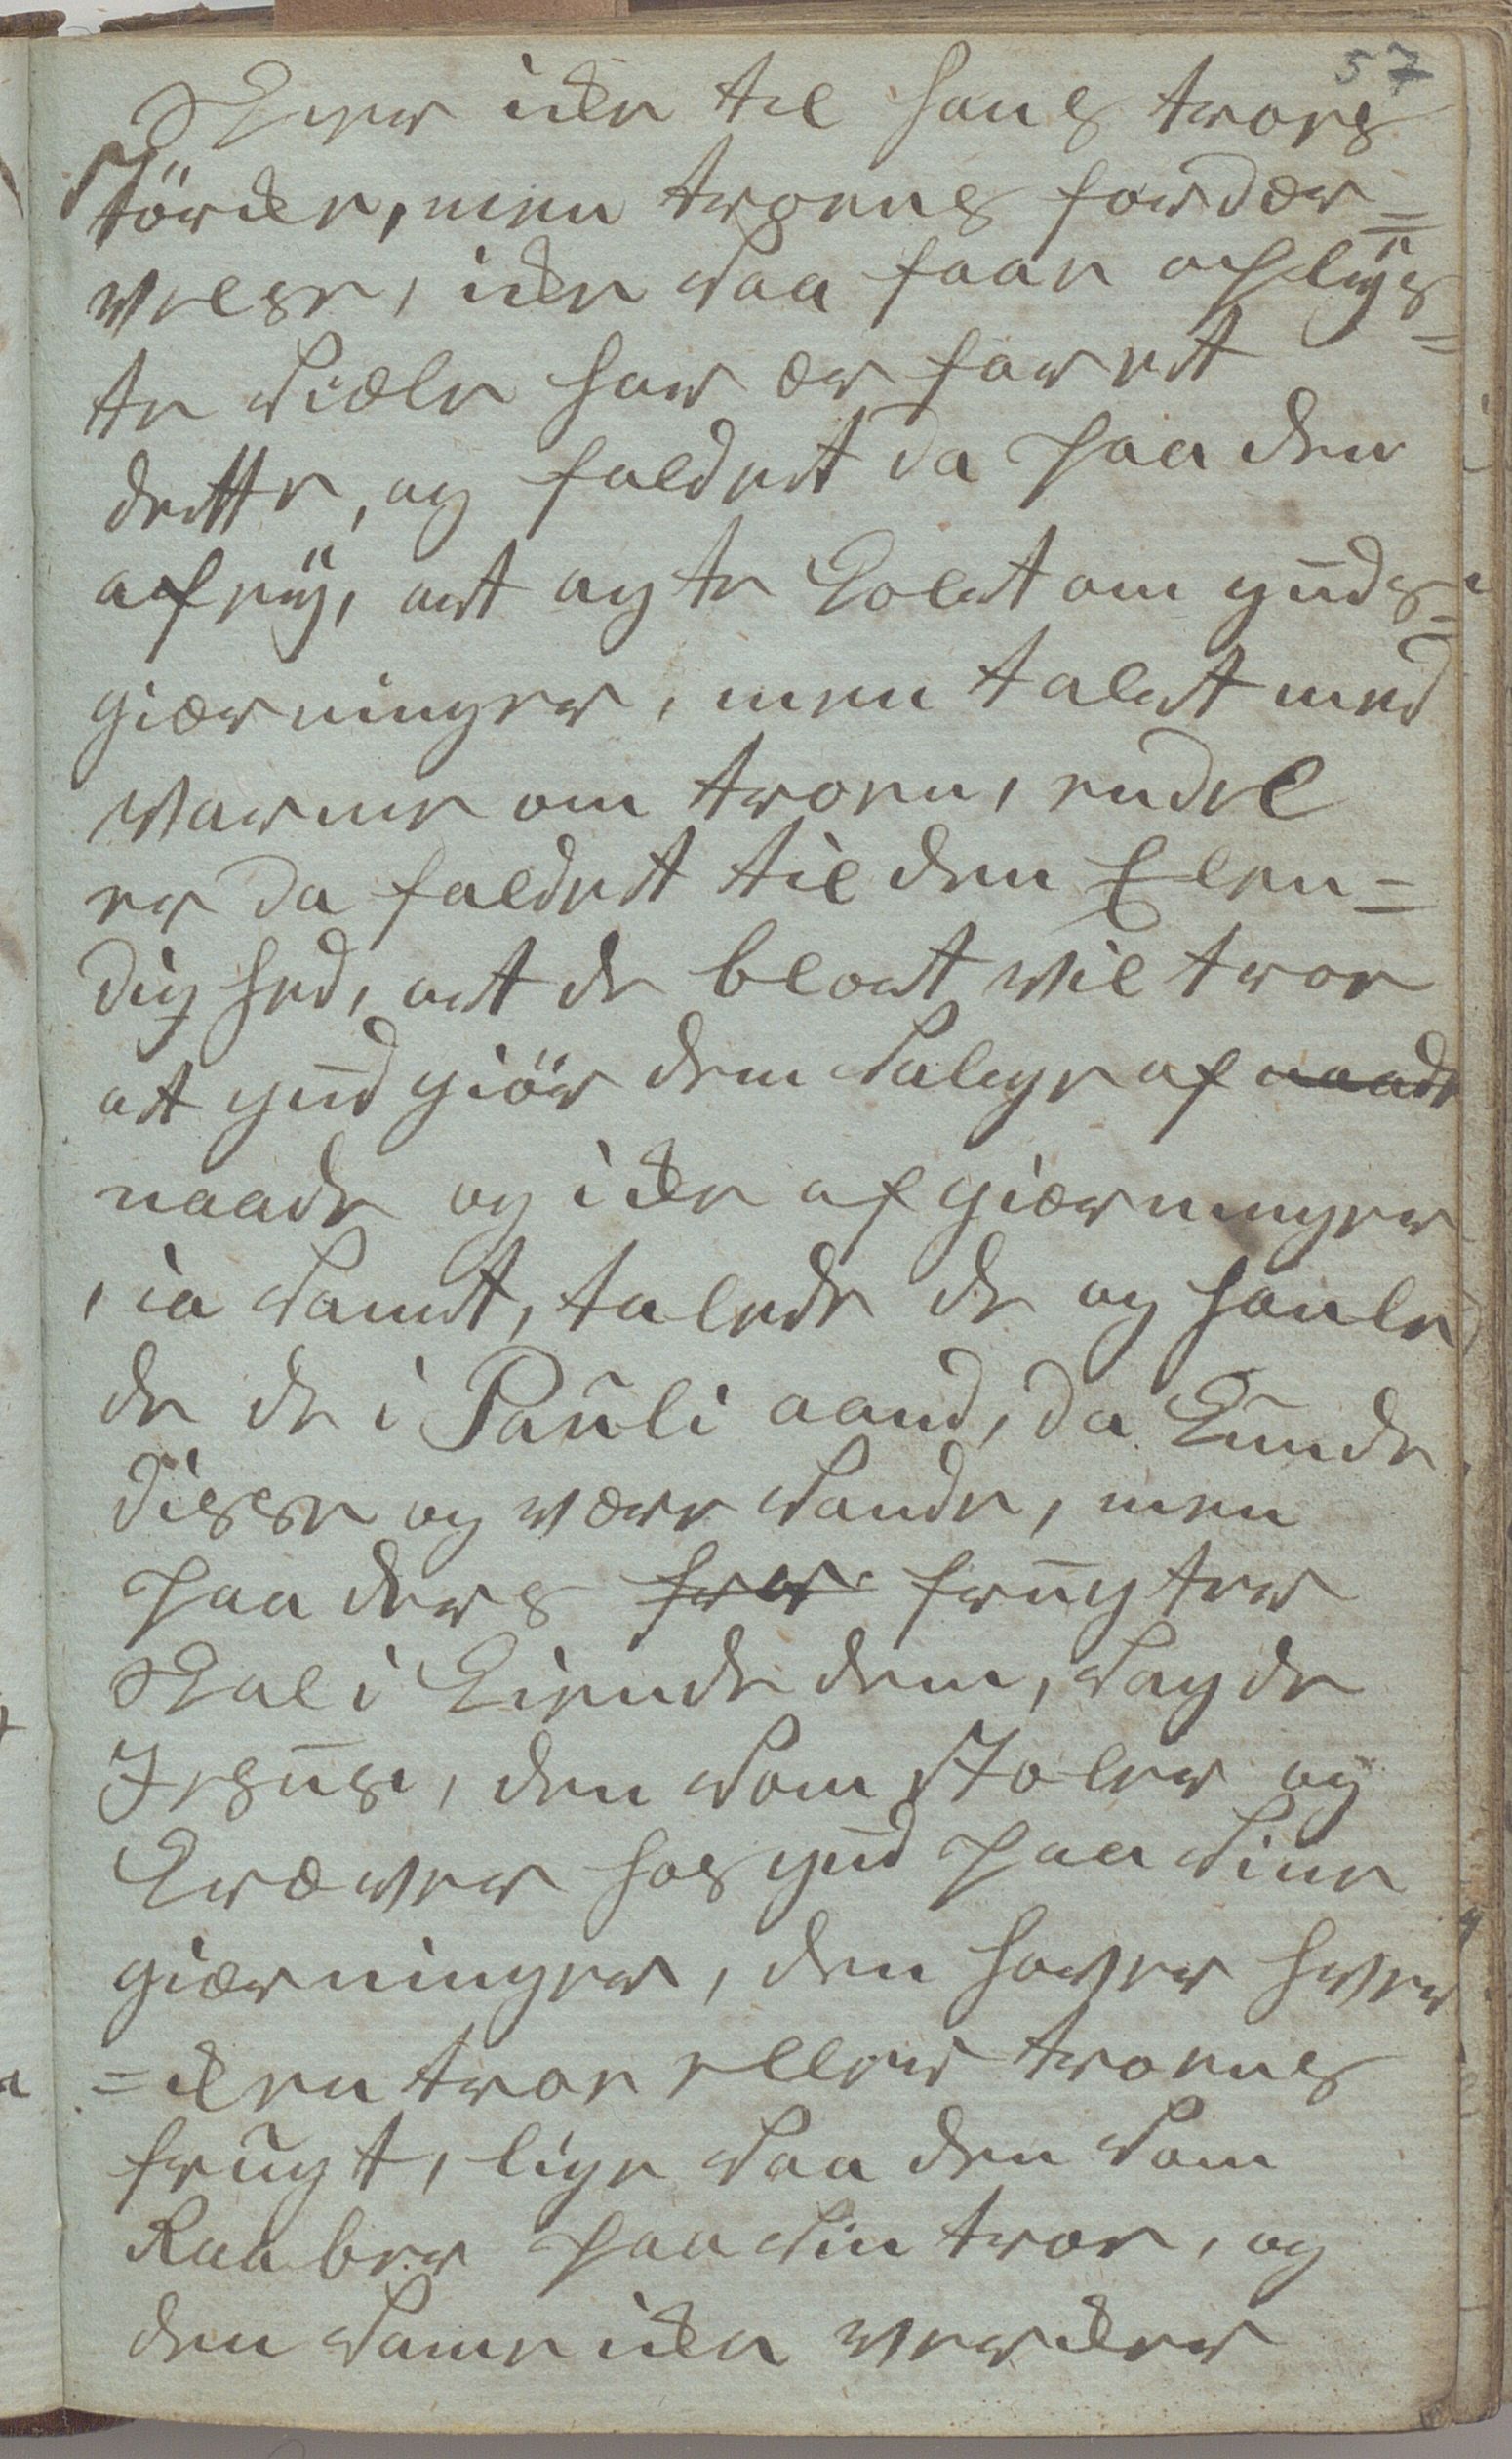 57
Skeer icke til hans troes
störcke, men troens fordær=
velse, icke saa faae oplys=
te Siæle har ær faret
dette, og faldet da paa den
afvey, at agte Holdt om guds=
giærninger, men talet med
Varme om troen, endeel
er da faldet til den Elen=
dighed, at de blodt vil troe
at gud giör dem Salige af naade
naade og icke af giærninger
, ia Sandt, talede de og hanle
de de i Pauli aand, da kunde
disse og være Sande, men
paa deres frer frugter
Skal i kiende dem, Sagde
Jesus, den Som stoler og
kræver hos gud paa Sine
giærninger, den haver hver
=cken troe eller troens
frugt, lige Saa den Som
Raaber paa Sin troe, og
den Samme icke vercker